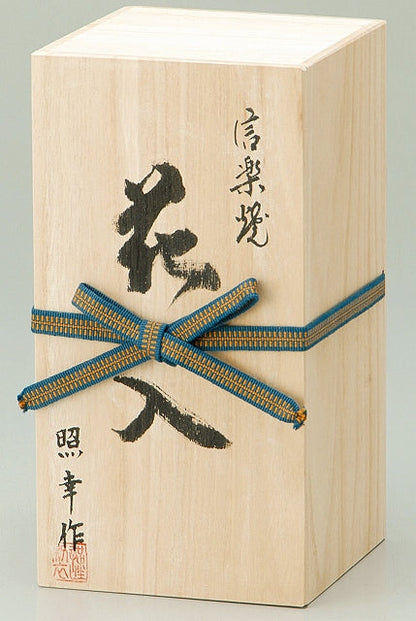 信楽焼
花入
照幸作